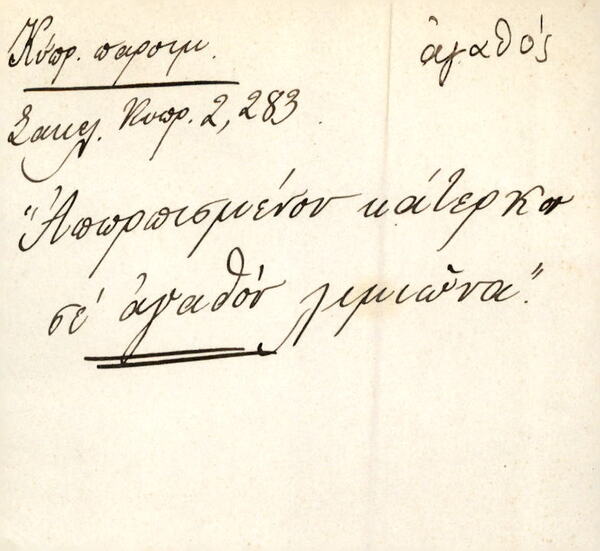 Κύπρ. παροιμ.
ἀγαθός
Σακελ. Κυπρ. 2, 283.
"Ἀπωρπισμένον κάτερκον
σέ ἀγαθόν λιμιῶνα".